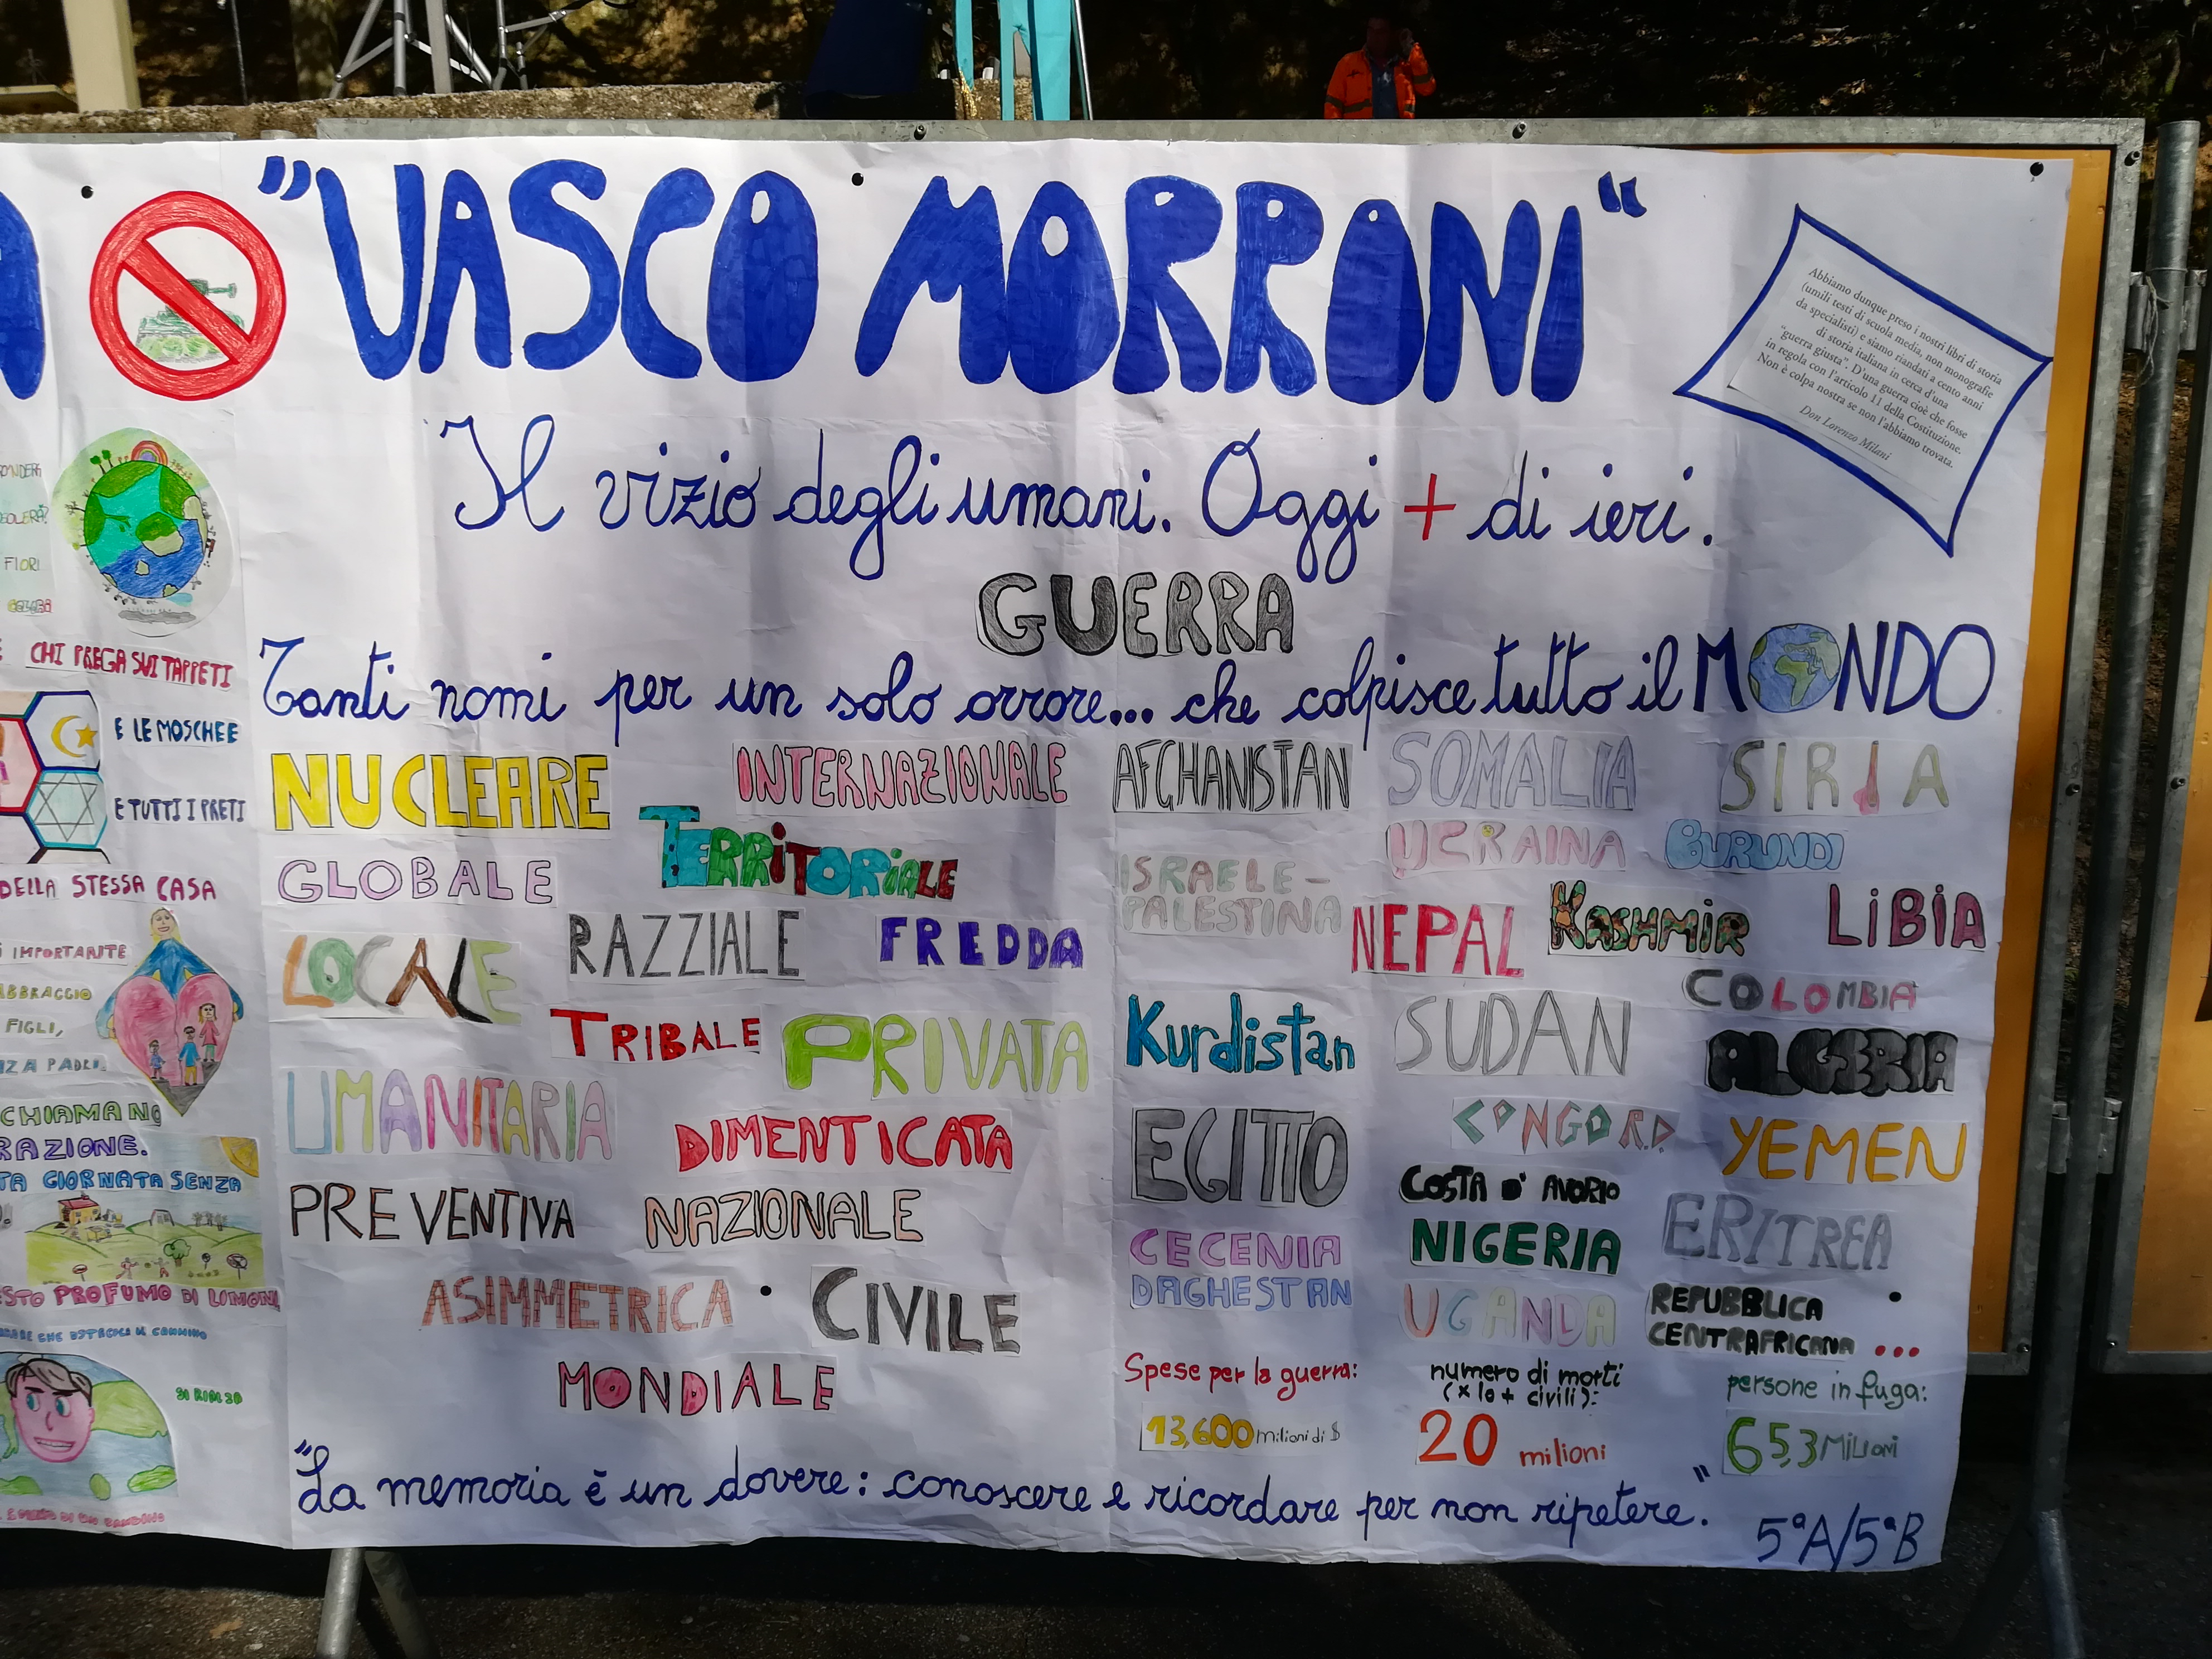 "VASCO MORRONI"
Abbiamo dunque preso i nostri libri di storia
(umili testi di scuola media, non monografie
da specialisti) e siamo riandati a cento anni
di storia italiana in cerca d'una
"guerra giusta". D'una guerra cioè che fosse
in regola con l'articolo 11 della Costituzione.
Non è colpa nostra se non l'abbiamo trovata.
Don Lorenzo Milani
Il vizio degli umani. Oggi + di ieri.
GUERRA
Tanti nomi per un solo orrore... che colpisce tutto il MONDO
NUCLEARE
INTERNAZIONALE
TERRITORiALE
GLOBALE
RAZZIALE
FREDDA
LOCALE
TRIBALE
PRIVATA
UMANITARIA
DIMENTICATA
PREVENTIVA
NAZIONALE
ASIMMETRICA
CIVILE
MONDIALE
AFGHANISTAN
SOMALIA
SIRIA
UCRAINA
BURUNDI
ISRAELE-
PALESTINA
NEPAL
KASHMiR
LiBiA
COLOMBIA
Kurdistan
SUDAN
ALGERIA
EGITTO
CONGO R.D
YEMEN
COSTA D' AVORIO
NIGERIA
ERITREA
CECENIA
DAGHESTAN
UGANDA
REPUBBLICA
CENTRAFRICANA ...
Spese per la guerra:
13,600 milioni di $
numero di morti
(x lo + civili):
20 milioni
persone in fuga:
65,3 MILIONI
"La memoria è un dovere: conoscere e ricordare per non ripetere."
5ªA/5ªB
FIORI
CHI PREGA SUI TAPPETI
E LE MOSCHEE
E TUTTI I PRETI
DELLA STESSA CASA
IMPORTANTE
ABBRACCIO
FIGLI,
CHIAMANO
RAZIONE.
TA GIORNATA SENZA
STO PROFUMO DI LIMONI